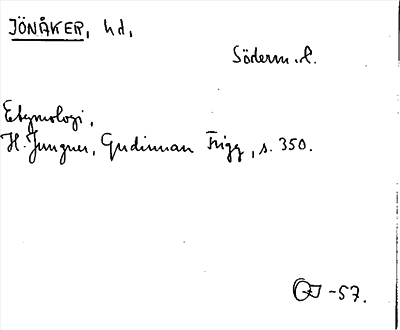 JÖNÅKER, hd,
Söderm. l.
Etymologi,
H. Jungner, Gudinnan Frigg, s. 350.
-57.